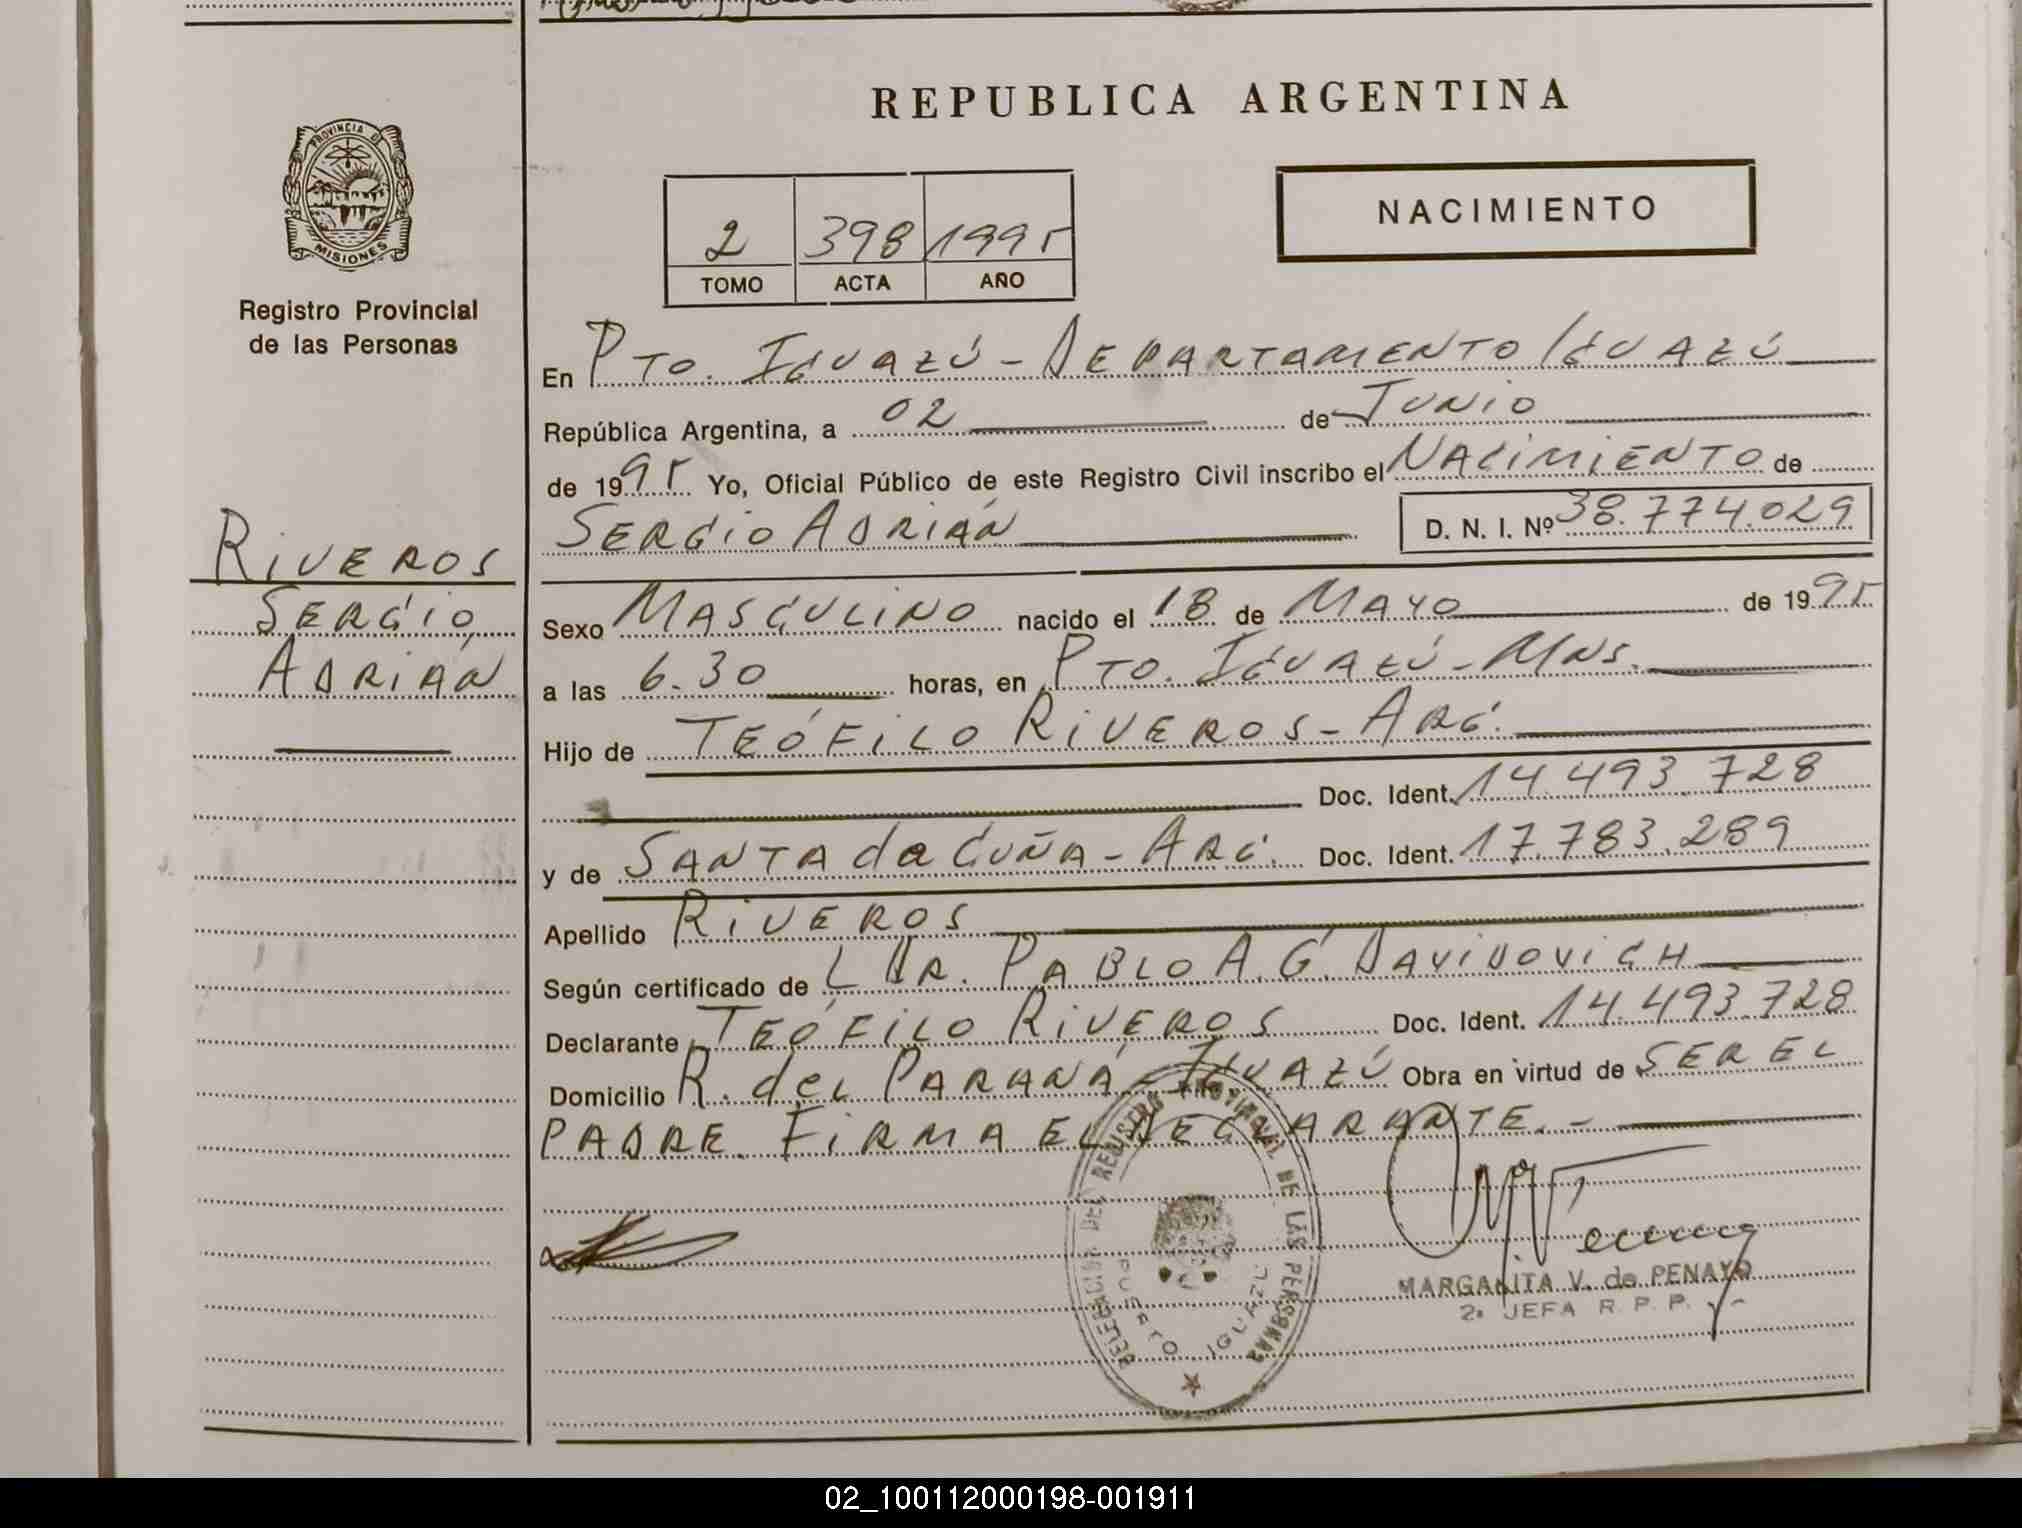 REPUBLICA ARGENTINA
PROVINCIA DE
MISIONES
Registro Provincial
de las Personas
2 398 1995
TOMO ACTA AÑO
NACIMIENTO
En PTO. IGUAZÚ - DEPARTAMENTO IGUAZÚ
República Argentina, a 02 de JUNIO
de 1995 Yo, Oficial Público de este Registro Civil inscribo el NACIMIENTO de
SERGIO ADRIÁN D. N. I. Nº 38.774.029
RIVEROS
SERGIO
ADRIÁN
Sexo MASCULINO nacido el 18 de MAYO de 1995
a las 6.30 horas, en PTO. IGUAZÚ - MNS.
Hijo de TEÓFILO RIVEROS - ARG.
Doc. Ident. 14.493.728
y de SANTA da CUÑA - ARG. Doc. Ident. 17.783.289
Apellido RIVEROS
Según certificado de DR. PABLO A. G. DAVIDOVICH
Declarante TEÓFILO RIVEROS Doc. Ident. 14.493.728
Domicilio R. del PARANÁ - IGUAZÚ Obra en virtud de SER EL
PADRE. FIRMA EL DECLARANTE. -
DELEGACION DEL REGISTRO PROVINCIAL DE LAS PERSONAS
PUERTO IGUAZU
MARGARITA V. de PENAYO
2ª JEFA R. P. P.
02_100112000198-001911